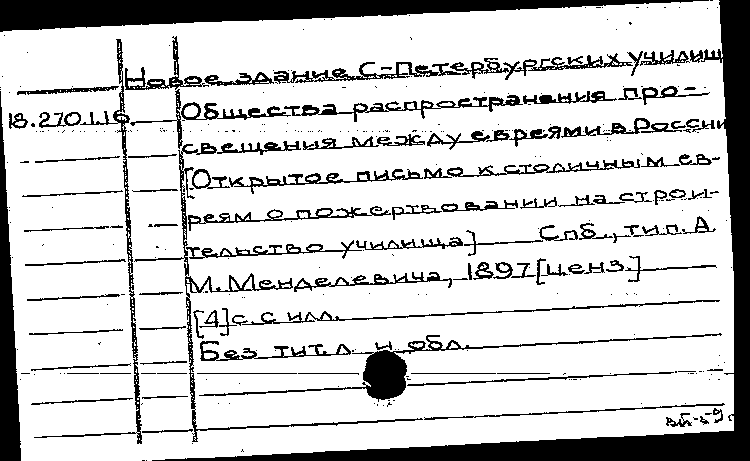 Новое здание С-Петербургских училищ
18.270.1.16. Общества распространения про-
свещения между евреями в России
[Открытое письмо к столичным ев-
реям о пожертвовании на строи-
тельство училища] Спб., тип. А.
М. Менделевича, 1897 [ценз.]
[4] с. с илл.
Без тит. л. и обл.